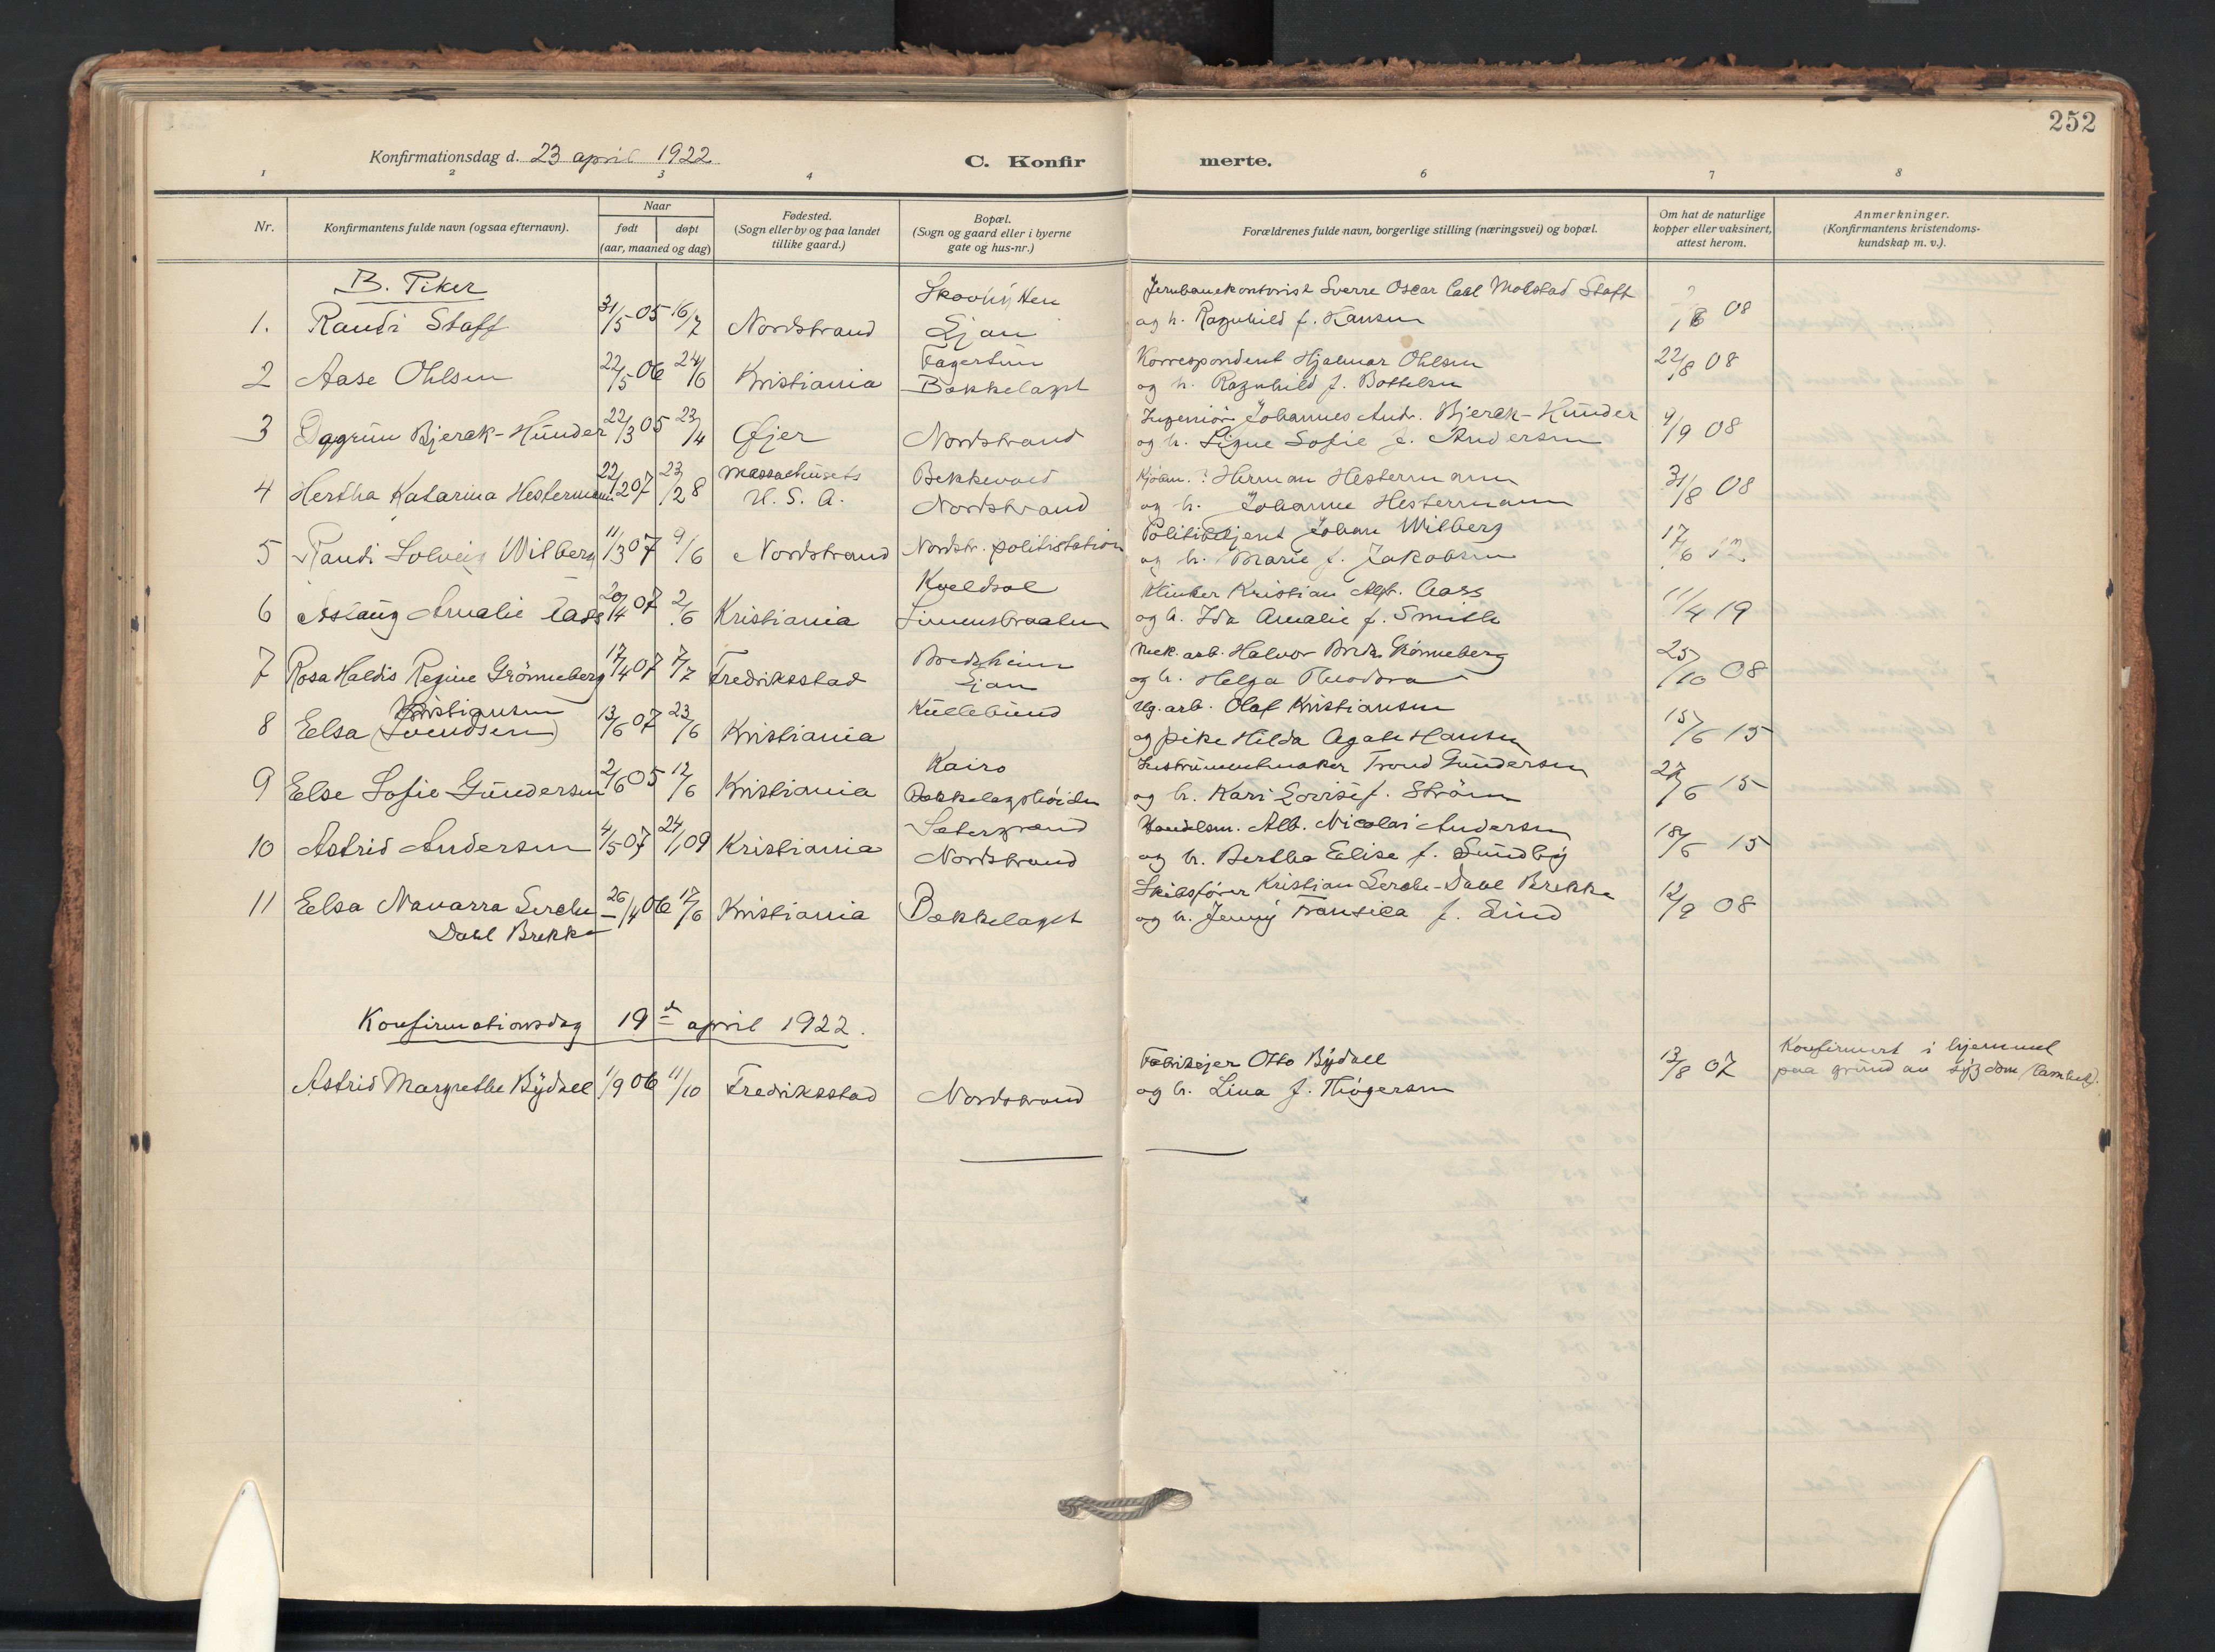 252
Konfirmationsdag d. 23 april 1922
C. Konfirmerte.
1 2 3 4 6 7 8
Nr.
Konfirmantens fulde navn (ogsaa efternavn).
Naar
født døpt
(aar, maaned og dag)
Fødested.
(Sogn eller by og paa landet
tillike gaard.)
Bopæl.
(Sogn og gaard eller i byerne
gate og hus-nr.)
Forældrenes fulde navn, borgerlige stilling (næringsvei) og bopæl.
Om hat de naturlige
kopper eller vaksinert,
attest herom.
Anmerkninger.
(Konfirmantens kristendoms-
kundskap m. v.).
B. Piker
1. Randi Staff 31/5 05 16/7 Nordstrand Ljan
Jernbanekontorist Sverre Oscar Carl Molstad Staff
og h. Ragnhild f. Hansen 08
2 Aase Ohlsen 22/5 06 24/6 Kristiania Fagertun
Bækkelaget
Korrespondent Hjalmar Ohlsen
og h. Ragnhild f. Bottelsen 22/8 08
3 Dagrun Bjerck-Hunder 22/3 05 23/4 Øjer Nordstrand
Ingeniør Johannes Andr. Bjerck-Hunder
og h. Signe Sofie f. Andersen 9/9 08
4 Hertha Katarina Hestermann 22/12 07 23/2 8 Massachusets
U. S. A. Bekkevold
Nordstrand
Kjøbm. Herman Hestermann
og h. Johanne Hestermann 31/8 08
5 Randi Solveig Wilberg 11/3 07 9/6 Nordstrand Nordstr. politistation
Politibetjent Johan Wilberg
og h. Marie f. Jakobsen 17/6 12
6 Aslaug Amalie Aass 20/4 07 2/6 Kristiania Kveldsol
Simensbraaten
Kristian Alf. Aass
og h. Ida Amalie f. Smith 11/4 19
7 Rosa Haldis Regine Grönneberg 17/4 07 7/7 Fredriksstad Bredsheim
Ljan
Mek. arb. Halvor Grönneberg
og h. Helga Theodora 25/10 08
8 Elsa Kristiansen
(Svendsen) 13/6 07 23/6 Kristiania Kullebund
Ug. arb. Olaf Kristiansen
og pike Hilda Agate Hansen 15/6 15
9 Else Sofie Gundersen 2/6 05 12/6 Kristiania Kairo
Bækkelagshöiden
Instrumentmaker Trond Gundersen
og h. Kari Lovise f. Ström 27/6 15
10 Astrid Andersen 4/5 07 24/1 09 Kristiania Sætergrend
Nordstrand
Handelsm. Alb. Nicolai Andersen
og h. Bertha Elise f. Sundby 18/6 15
11 Elsa Navarra Lerche
Dahl Brekke 26/4 06 17/6 Kristiania Bækkelaget
Skibsfører Kristian Lerche-Dahl Brekke
og h. Jenny f. Lund 12/9 08
Konfirmationsdag 19de april 1922.
Astrid Margrethe Bydall 1/9 06 11/10 Fredriksstad Nordstrand
Fabrikejer Otto Bydall
og h. Lina f. Thøgersen 13/8 07
Konfirmert i hjemmet
paa grund av sygdom